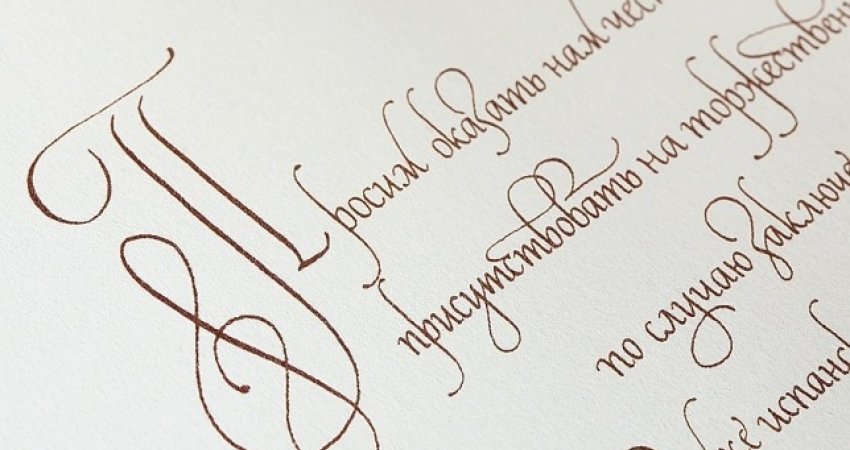 Просим оказать нам чес
присутствовать на торжествен
по случаю заключе
испанс